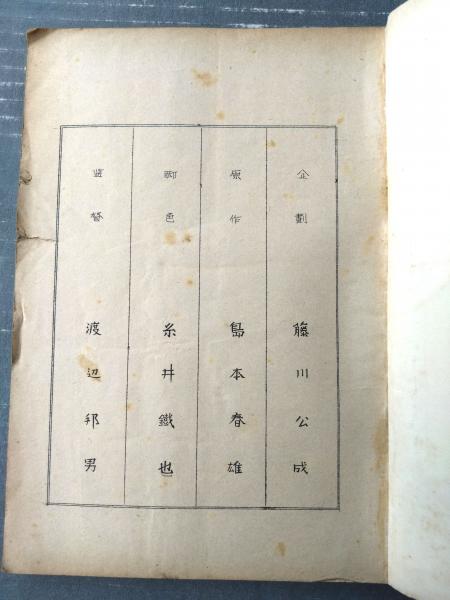 企劃 藤川公成
原作 島本春雄
脚色 糸井鐵也
監督 渡辺邦男